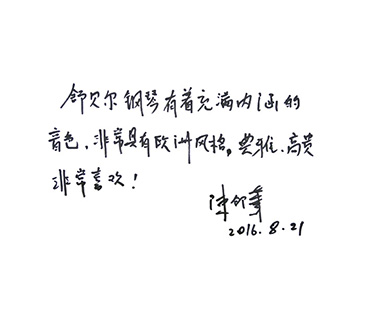 舒贝尔钢琴有着充满内涵的
音色，非常具有欧洲风格。典雅、高贵
非常喜欢！
2016.8.21